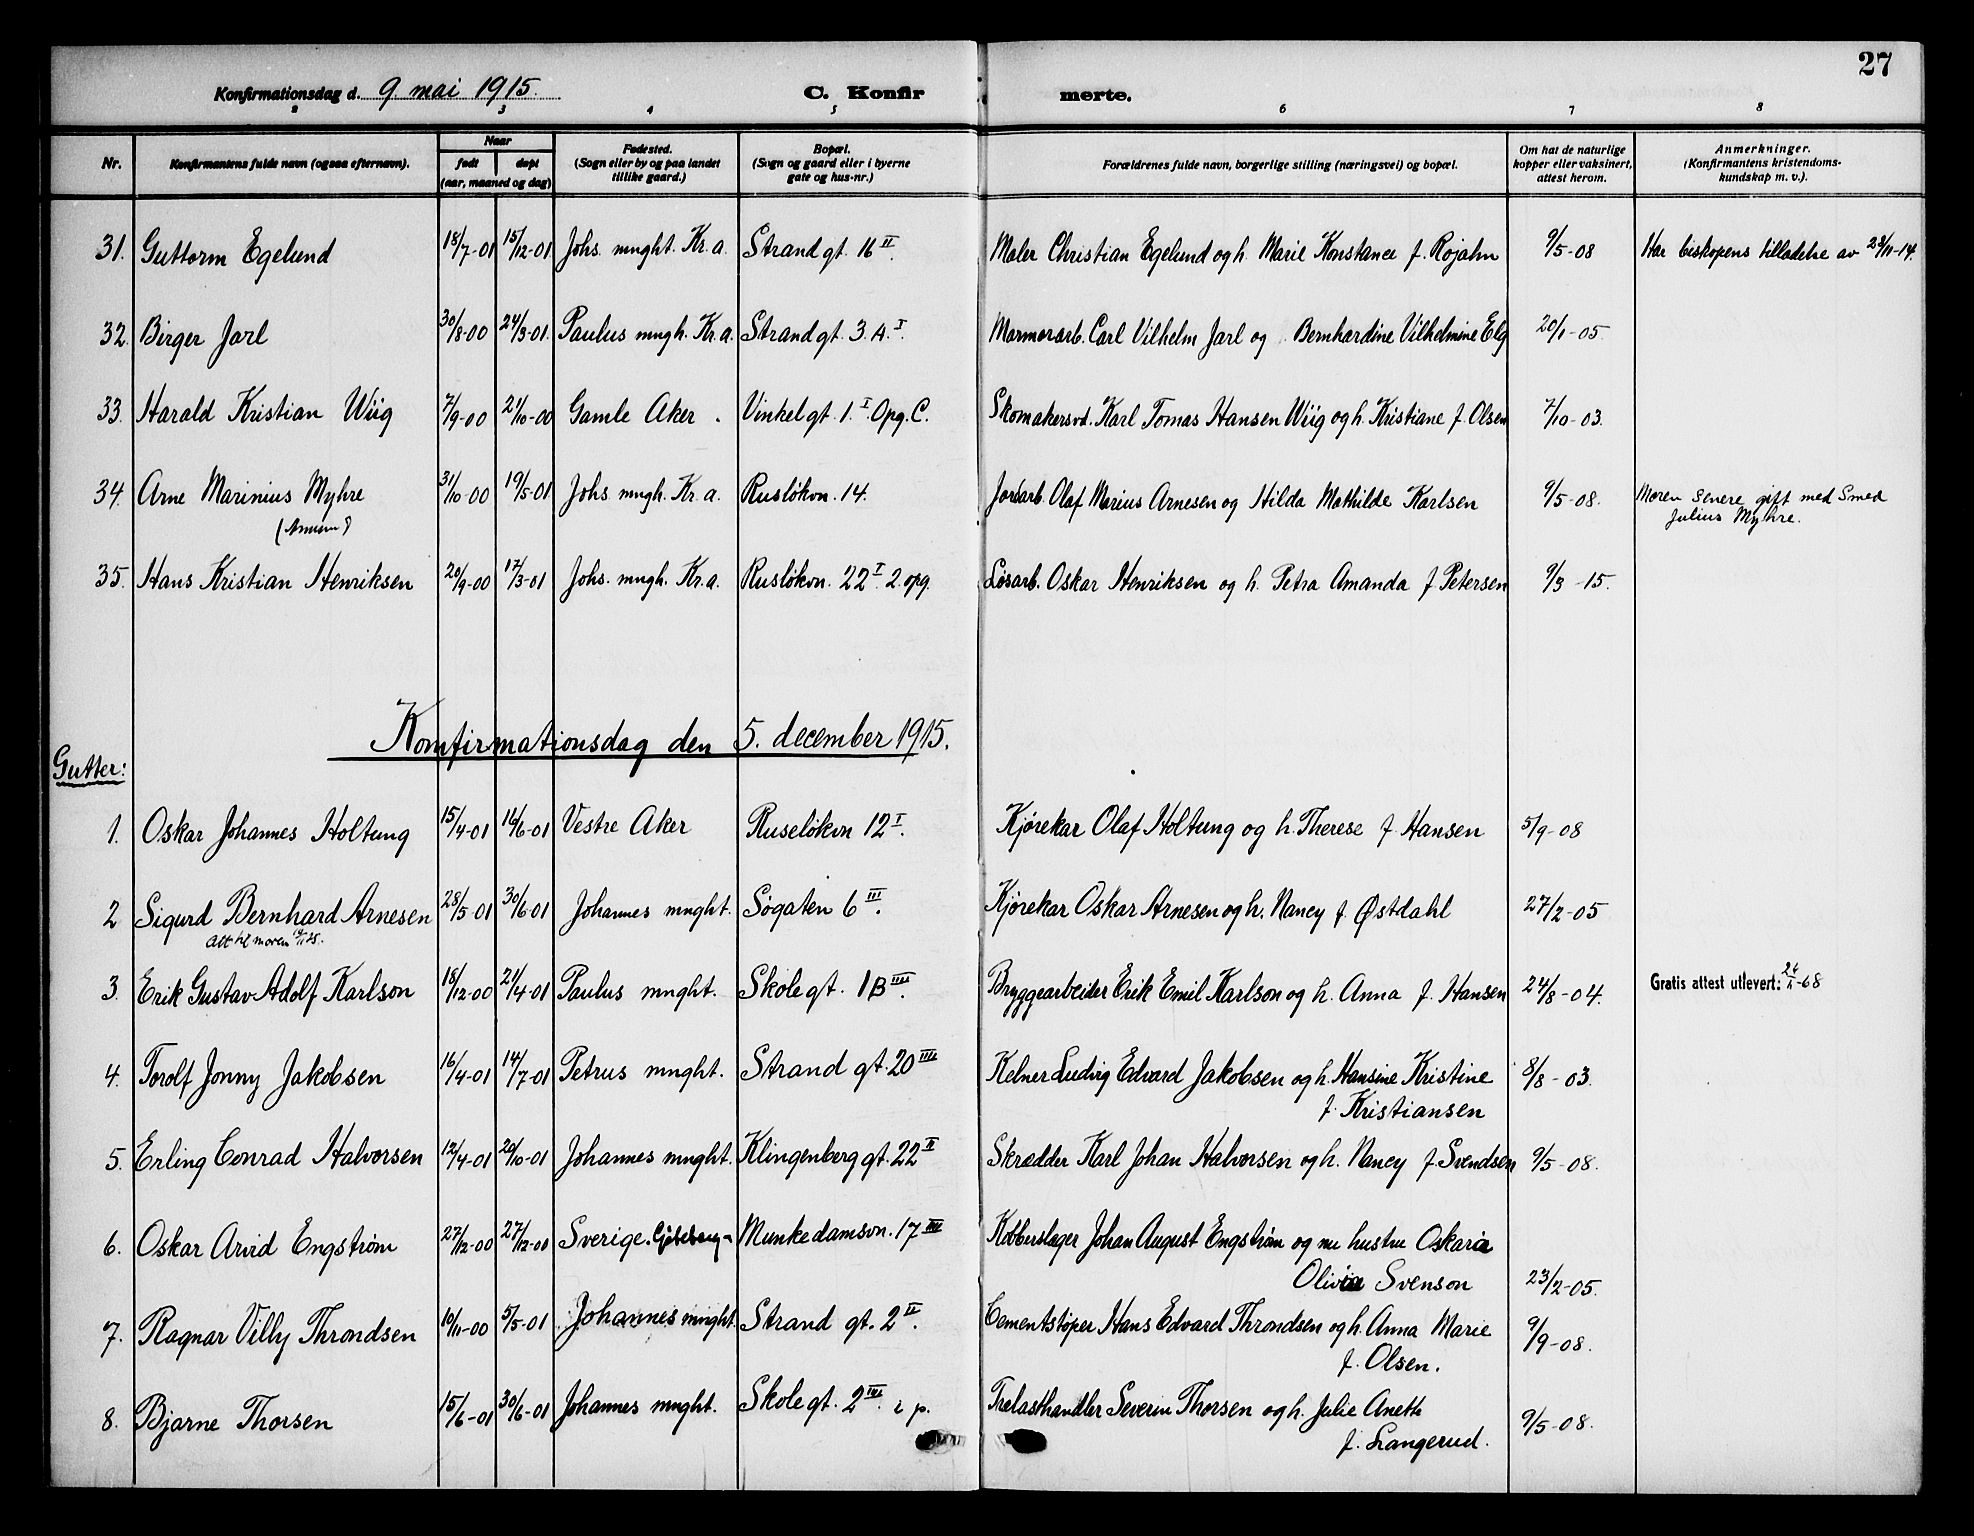 27
Konfirmationsdag d. 9. mai 1915. C. Konfir merte.
2 3 4 5 6 7 8
Nr. Konfirmantens fulde navn (ogsaa efternavn). Naar født døpt (aar, maaned og dag) Fødested. (Sogn eller by og paa landet tillike gaard.) Bopæl. (Sogn og gaard eller i byerne gate og hus-nr.) Forældrenes fulde navn, borgerlige stilling (næringsvei) og bopæl. Om hat de naturlige kopper eller vaksinert, attest herom. Anmerkninger. (Konfirmantens kristendoms-kundskap m. v.).
31. Guttorm Egelund 18/7-01 15/12-01 Johs. mnght. Kr.a. Strandgt. 16 II. Maler Christian Egelund og h. Marie Konstance f. Rojahn 9/5-08 Har biskopens tilladelse av 28/11-14.
32. Birger Jarl 30/8-00 24/3-01. Paulus mngh. Kr.a. Strandgt. 3. A. I. Marmorarb. Carl Vilhelm Jarl og Bernhardine Vilhelmine Elg 20/1-05.
33. Harald Kristian Wiig 7/9-00 21/10-00 Gamle Aker. Vinkelgt. 1. I Opg. C. Skomakersvd. Karl Tomas Hansen Wiig og h. Kristiane f. Olsen 7/10-03.
34. Arne Marinius Myhre 31/10-00 19/5-01 Johs. mngh. Kr.a. Rusløkvn. 14. Jordarb. Olaf Marius Arnesen og Hilda Mathilde Karlsen 9/5-08. Moren senere gift med Smed
Julius Myhre.
35. Hans Kristian Henriksen 20/9-00 17/3-01 Johs. mngh. Kr.a. Rusløkvn. 22 I 2. opg. Løsarb. Oskar Henriksen og h. Petra Amanda f. Petersen 9/3-15.
Komfirmationsdag den 5. december 1915.
Gutter:
1. Oskar Johannes Holtung 15/4-01 16/6-01 Vestre Aker Ruseløkvn 12 I. Kjørekar Olaf Holtung og h. Therese f. Hansen 5/9-08
2 Sigurd Bernhard Arnesen 28/5-01 30/6-01 Johannes mnght. Søgaten 6 III. Kjørekar Oskar Arnesen og h. Nancy f. Østdahl 27/2-05
Att til moren
3. Erik Gustav Adolf Karlson 18/12-00 21/4-01 Paulus mnght. Skolegt. 1B IIII. Bryggearbeider Erik Emil Karlson og h. Anna f. Hansen 24/8-04. Gratis attest utlevert: 24/1-68
4. Torolf Jonny Jakobsen 16/4-01 14/7-01 Petrus mnght. Strand gt. 20 IIII Kelner Ludvig Edvard Jakobsen og h. Hansine Kristine 8/8-03.
f. Kristiansen
5. Erling Conrad Halvorsen 12/4-01 20/10-01 Johannes mnght. Klingenberggt. 22 II Skrædder Karl Johan Halvorsen og h. Nancy f. Svendsen 9/5-08.
6. Oskar Arvid Engstrøm 27/12-00 27/12-00 Sverige. Gøteborg- Munkedamsvn. 17 III Kobberslager Johan August Engstrøm og nu hustru Oskaria
Olivia Svenson 23/2-05.
7. Ragnar Villy Throndsen 10/11-00 5/5-01 Johannes mnght. Strand gt. 2 II. Cementstøper Hans Edvard Throndsen og h. Anna Marie
f. Olsen. 9/9-08.
8. Bjarne Thorsen 15/6-01 30/6-01 Johannes mnght. Skolegt. 2 III. i p. Trelasthandler Severin Thorsen og h. Julie Anette
f. Langerud. 9/5-08.